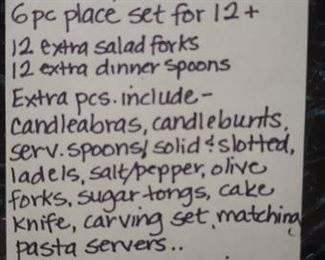 6pc place set for 12+
12 extra salad forks
12 extra dinner spoons
Extra pcs. include-
Candleabras, candleburits,
serv. spoons/ solid & slotted,
ladels, salt/pepper, olive
forks, sugar tongs, cake
knife, carving set, matching
pasta servers..